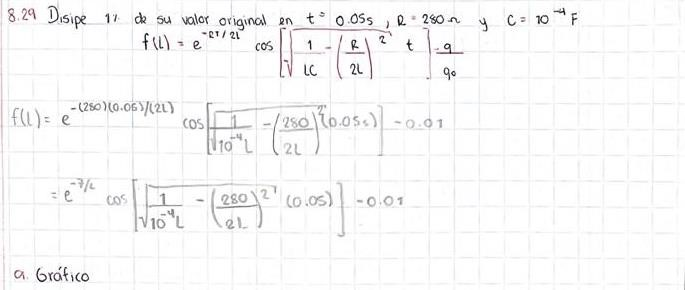 8.29 Disipe 1% de su valor original en t = 0.05s, R = 280 Ω y C = 10⁻⁴ F
f(L) = e^(-RT/2L) cos [√(1/LC - (R/2L)²) t] - q/q₀
f(L) = e^(-(280)(0.05)/(2L)) cos [√(1/10⁻⁴L - (280/2L)²) (0.05s)] - 0.01
= e^(-7/L) cos [√(1/10⁻⁴L - (280/2L)²) (0.05)] - 0.01
a. Gráfico